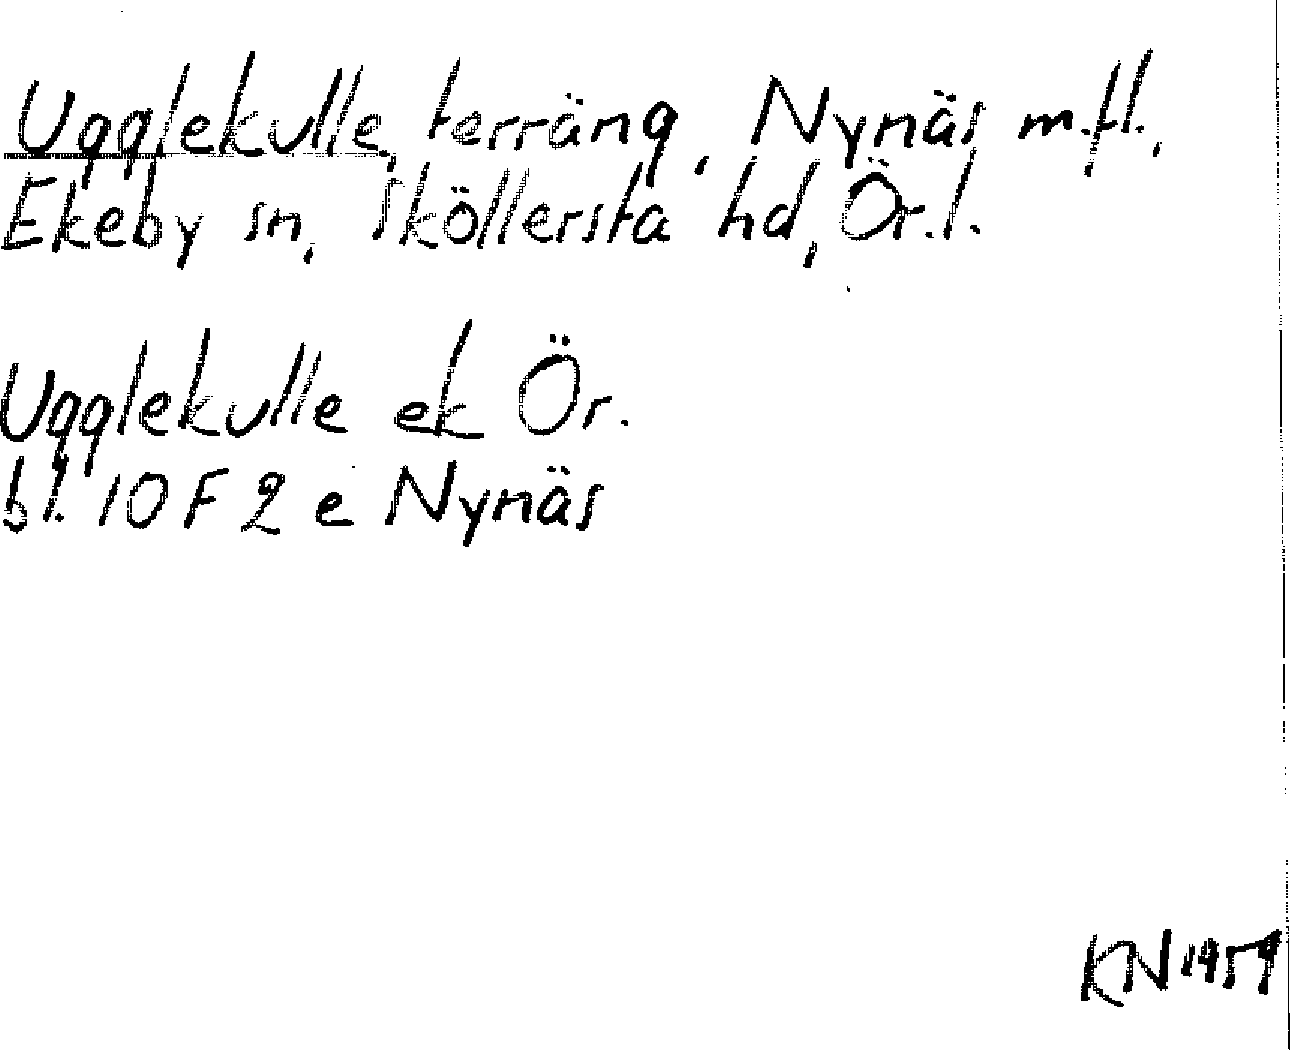 Ugglekulle, terräng, Nynäs m.fl.,
Ekeby sn, Sköllersta hd, Ör.l.
Ugglekulle ek Ör.
bl. 10 F 2 e Nynäs
KN 1959